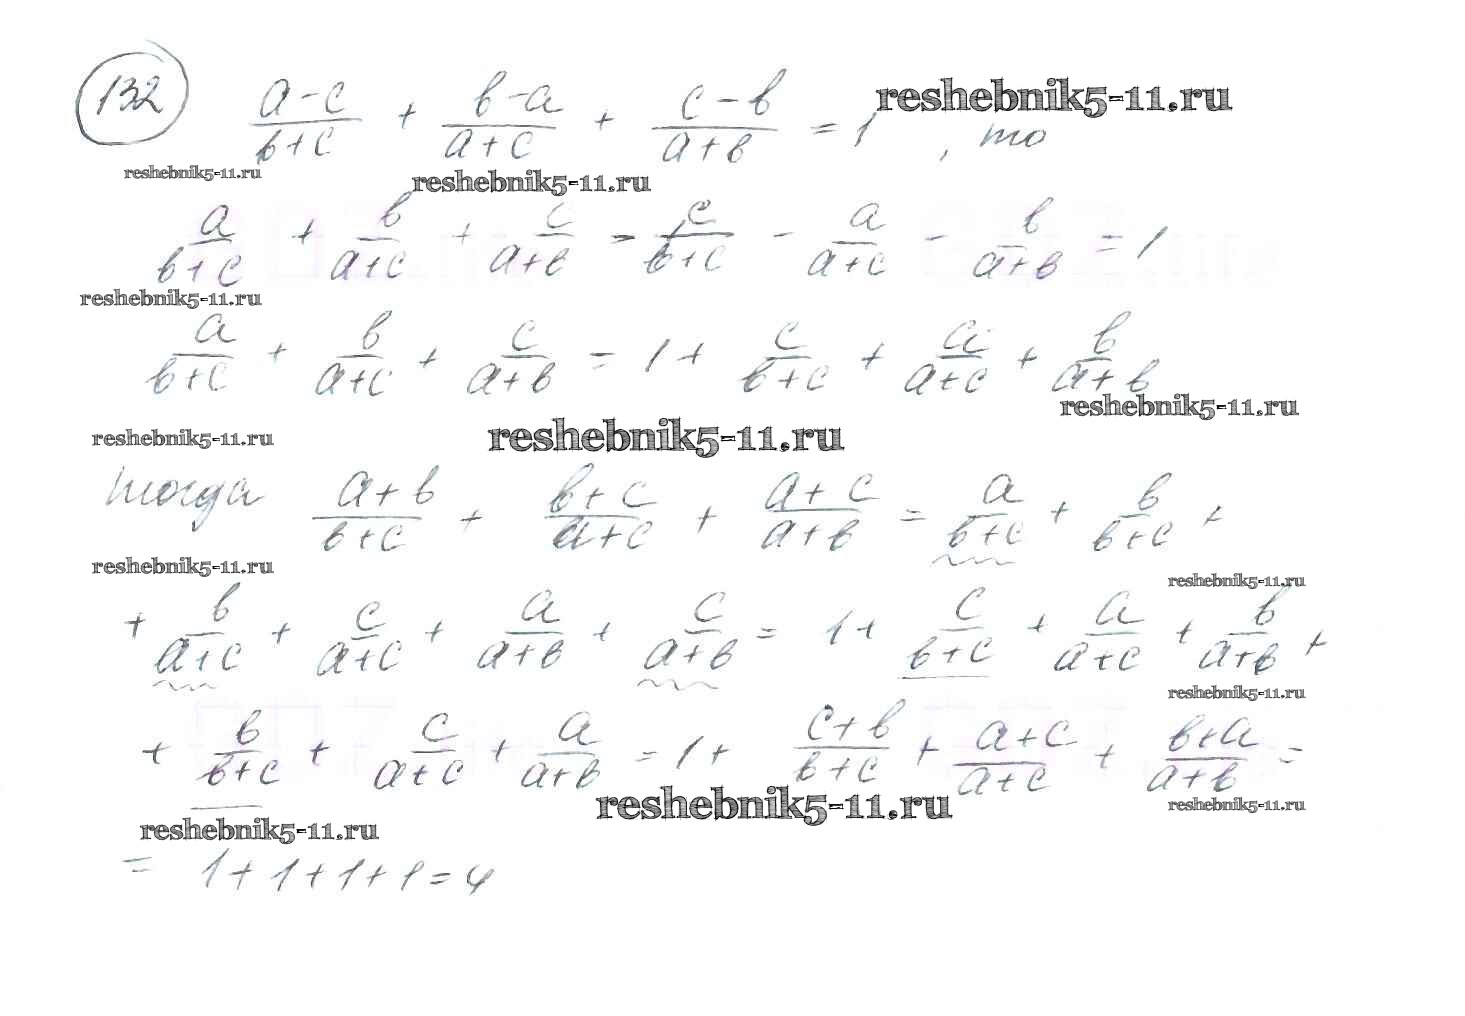 132 (a-c)/(в+c) + (в-a)/(a+c) + (c-в)/(a+в) = 1, то reshebnik5-11.ru
reshebnik5-11.ru reshebnik5-11.ru
a/(в+c) + в/(a+c) + c/(a+в) - c/(в+c) - a/(a+c) - в/(a+в) = 1
reshebnik5-11.ru
a/(в+c) + в/(a+c) + c/(a+в) = 1 + c/(в+c) + a/(a+c) + в/(a+в)
reshebnik5-11.ru
reshebnik5-11.ru reshebnik5-11.ru
тогда (a+в)/(в+c) + (в+c)/(a+c) + (a+c)/(a+в) = a/(в+c) + в/(в+c) +
reshebnik5-11.ru reshebnik5-11.ru
+ в/(a+c) + c/(a+c) + a/(a+в) + c/(a+в) = 1 + c/(в+c) + a/(a+c) + в/(a+в) +
reshebnik5-11.ru
+ в/(в+c) + c/(a+c) + a/(a+в) = 1 + (c+в)/(в+c) + (a+c)/(a+c) + (в+a)/(a+в) =
reshebnik5-11.ru reshebnik5-11.ru
reshebnik5-11.ru
= 1 + 1 + 1 + 1 = 4